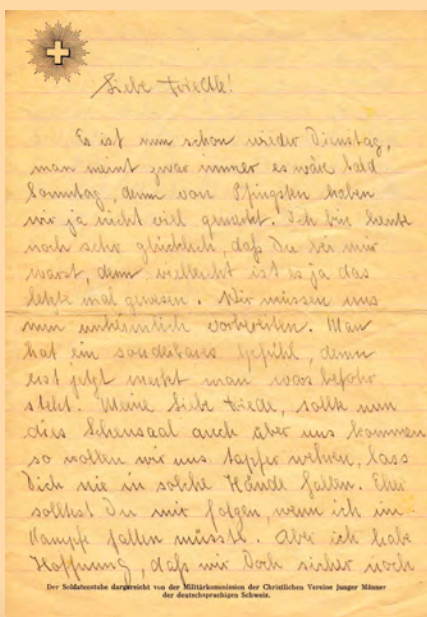 Liebe Friedle!
Es ist nun schon wieder Dienstag,
man meint zwar immer es wäre bald
Sonntag, denn von Pfingsten haben
wir ja nicht viel gemerkt. Ich bin heute
noch sehr glücklich, daß Du bei mir
warst, denn vielleicht ist es ja das
letzte mal gewesen. Wir müssen uns
nun unheimlich vorbereiten. Man
hat ein sonderbares Gefühl, denn
erst jetzt merkt man was befohr
steht. Meine Liebe Friedle, sollte nun
dies Scheusaal auch über uns kommen
so wollen wir uns tapfer wehren, lass
Dich nie in solche Hände fallen. Eher
solltest Du mir folgen, wenn ich im
Kampfe fallen müsste. Aber ich habe
Hoffnung, daß wir Doch sicher noch
Der Soldatenstube dargereicht von der Militärkommission der Christlichen Vereine junger Männer
der deutschsprachigen Schweiz.